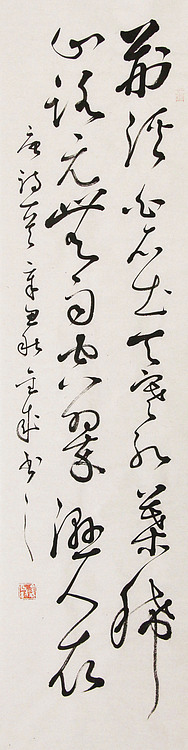 荊溪白石出天寒紅葉稀
山路元無雨空翠濕人衣
唐詩一首 秋 書之